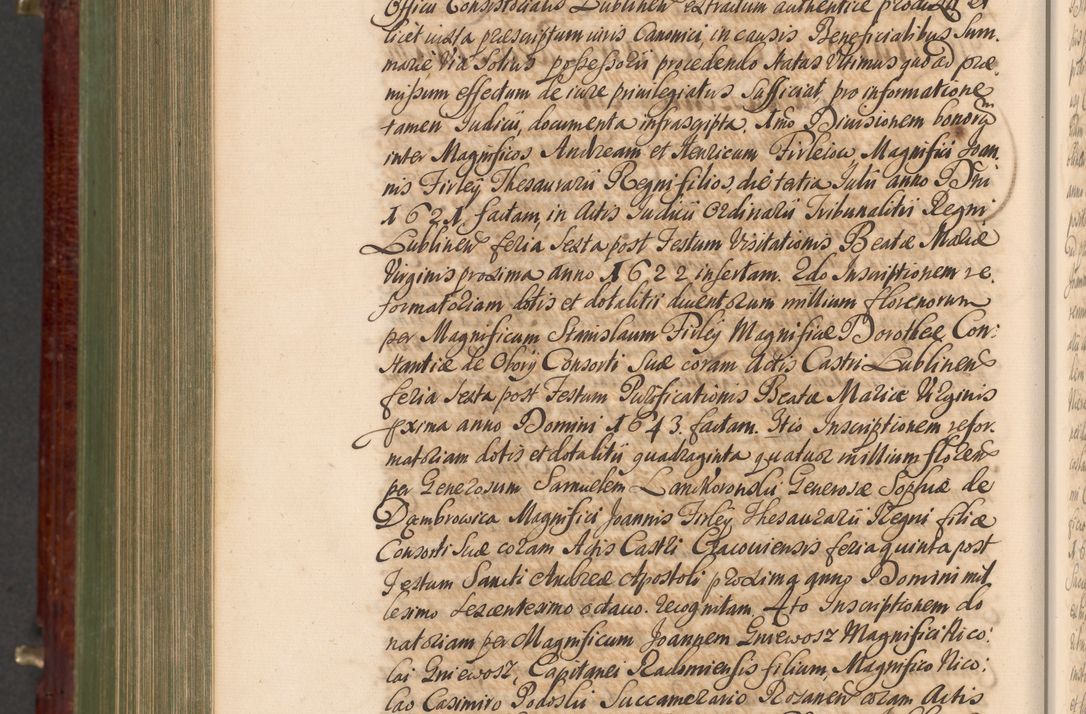 Officii Consistorialis Lublinen extractum authentice producit et
licet iuxta præscriptum iuris Canonici, in causis Beneficialibus Sum
marie via solius possessorii procedendo status ultimus quo ad præ
missum effectum de iure privilegiatus sufficiat pro informatione
tamen Judicii, documenta infrascripta. Imo Divisionem bonorum
inter Magnificos Andream et Henricum Firleiow Magnifici Joan
nis Firley Thesaurarii Regni filios, die tertia Julii anno Dni
1621. factam, in Actis Judicii Ordinarii Tribunalitii Regni
Lublinen feria sexta post Festum Visitationis Beatæ Mariæ
Virginis proxima anno 1622 insertam. 2do Inscriptionem re
formatoriam dotis et dotalitii ducentorum millium florenorum
per Magnificum Stanislaum Firley Magnificæ Dorotheæ Con:
stantiæ de Obory Consorti suæ coram Actis Castri Lublinen
feria sexta post Festum Purificationis Beatæ Mariæ Virginis
pxima anno Domini 1643. factam. 3tio Inscriptionem refor
matoriam dotis et dotalitii quadraginta quatuor millium floren
per Generosum Samuelem Lanckoronskii Generosæ Sophiæ de
Dąmbrowica Magnifici Joannis Firley Thesaurarii Regni filiæ
Consorti suæ coram Actis Castri Cracoviensis feria quinta post
Festum Sancti Andreæ Apostoli proxima anno Domini mil
lesimo sexcentesimo octavo. recognitam, 4to Inscriptionem do
natoriam per Magnificum Joannem Gniewosz Magnifici Nico
lai Gniewosz, Capitanei Radomiensis filium, Magnifico Nico:
lao Casimiro Podoski Succamerario Rozanen coram Actis